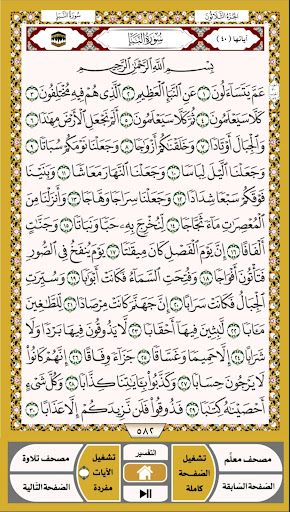 سُورَةُ النَّبَإِ
الجُزْءُ الثَّلَاثُونَ
آياتها (٤٠)
سُورَةُ النَّبَإِ
بِسْمِ اللَّهِ الرَّحْمَٰنِ الرَّحِيمِ
عَمَّ يَتَسَاءَلُونَ ١ عَنِ النَّبَإِ الْعَظِيمِ ٢ الَّذِي هُمْ فِيهِ مُخْتَلِفُونَ ٣
كَلَّا سَيَعْلَمُونَ ٤ ثُمَّ كَلَّا سَيَعْلَمُونَ ٥ أَلَمْ نَجْعَلِ الْأَرْضَ مِهَادًا ٦
وَالْجِبَالَ أَوْتَادًا ٧ وَخَلَقْنَاكُمْ أَزْوَاجًا ٨ وَجَعَلْنَا نَوْمَكُمْ سُبَاتًا ٩
وَجَعَلْنَا اللَّيْلَ لِبَاسًا ١٠ وَجَعَلْنَا النَّهَارَ مَعَاشًا ١١ وَبَنَيْنَا
فَوْقَكُمْ سَبْعًا شِدَادًا ١٢ وَجَعَلْنَا سِرَاجًا وَهَّاجًا ١٣ وَأَنْزَلْنَا مِنَ
الْمُعْصِرَاتِ مَاءً ثَجَّاجًا ١٤ لِنُخْرِجَ بِهِ حَبًّا وَنَبَاتًا ١٥ وَجَنَّاتٍ
أَلْفَافًا ١٦ إِنَّ يَوْمَ الْفَصْلِ كَانَ مِيقَاتًا ١٧ يَوْمَ يُنْفَخُ فِي الصُّورِ
فَتَأْتُونَ أَفْوَاجًا ١٨ وَفُتِحَتِ السَّمَاءُ فَكَانَتْ أَبْوَابًا ١٩ وَسُيِّرَتِ
الْجِبَالُ فَكَانَتْ سَرَابًا ٢٠ إِنَّ جَهَنَّمَ كَانَتْ مِرْصَادًا ٢١ لِلطَّاغِينَ
مَآبًا ٢٢ لَابِثِينَ فِيهَا أَحْقَابًا ٢٣ لَا يَذُوقُونَ فِيهَا بَرْدًا وَلَا
شَرَابًا ٢٤ إِلَّا حَمِيمًا وَغَسَّاقًا ٢٥ جَزَاءً وِفَاقًا ٢٦ إِنَّهُمْ كَانُوا
لَا يَرْجُونَ حِسَابًا ٢٧ وَكَذَّبُوا بِآيَاتِنَا كِذَّابًا ٢٨ وَكُلَّ شَيْءٍ
أَحْصَيْنَاهُ كِتَابًا ٢٩ فَذُوقُوا فَلَنْ نَزِيدَكُمْ إِلَّا عَذَابًا ٣٠
٥٨٢
مصحف معلّم
تشغيل الصفحة كاملة
التفسير
تشغيل الآيات مفردة
مصحف تلاوة
الصفحة السابقة
الصفحة التالية